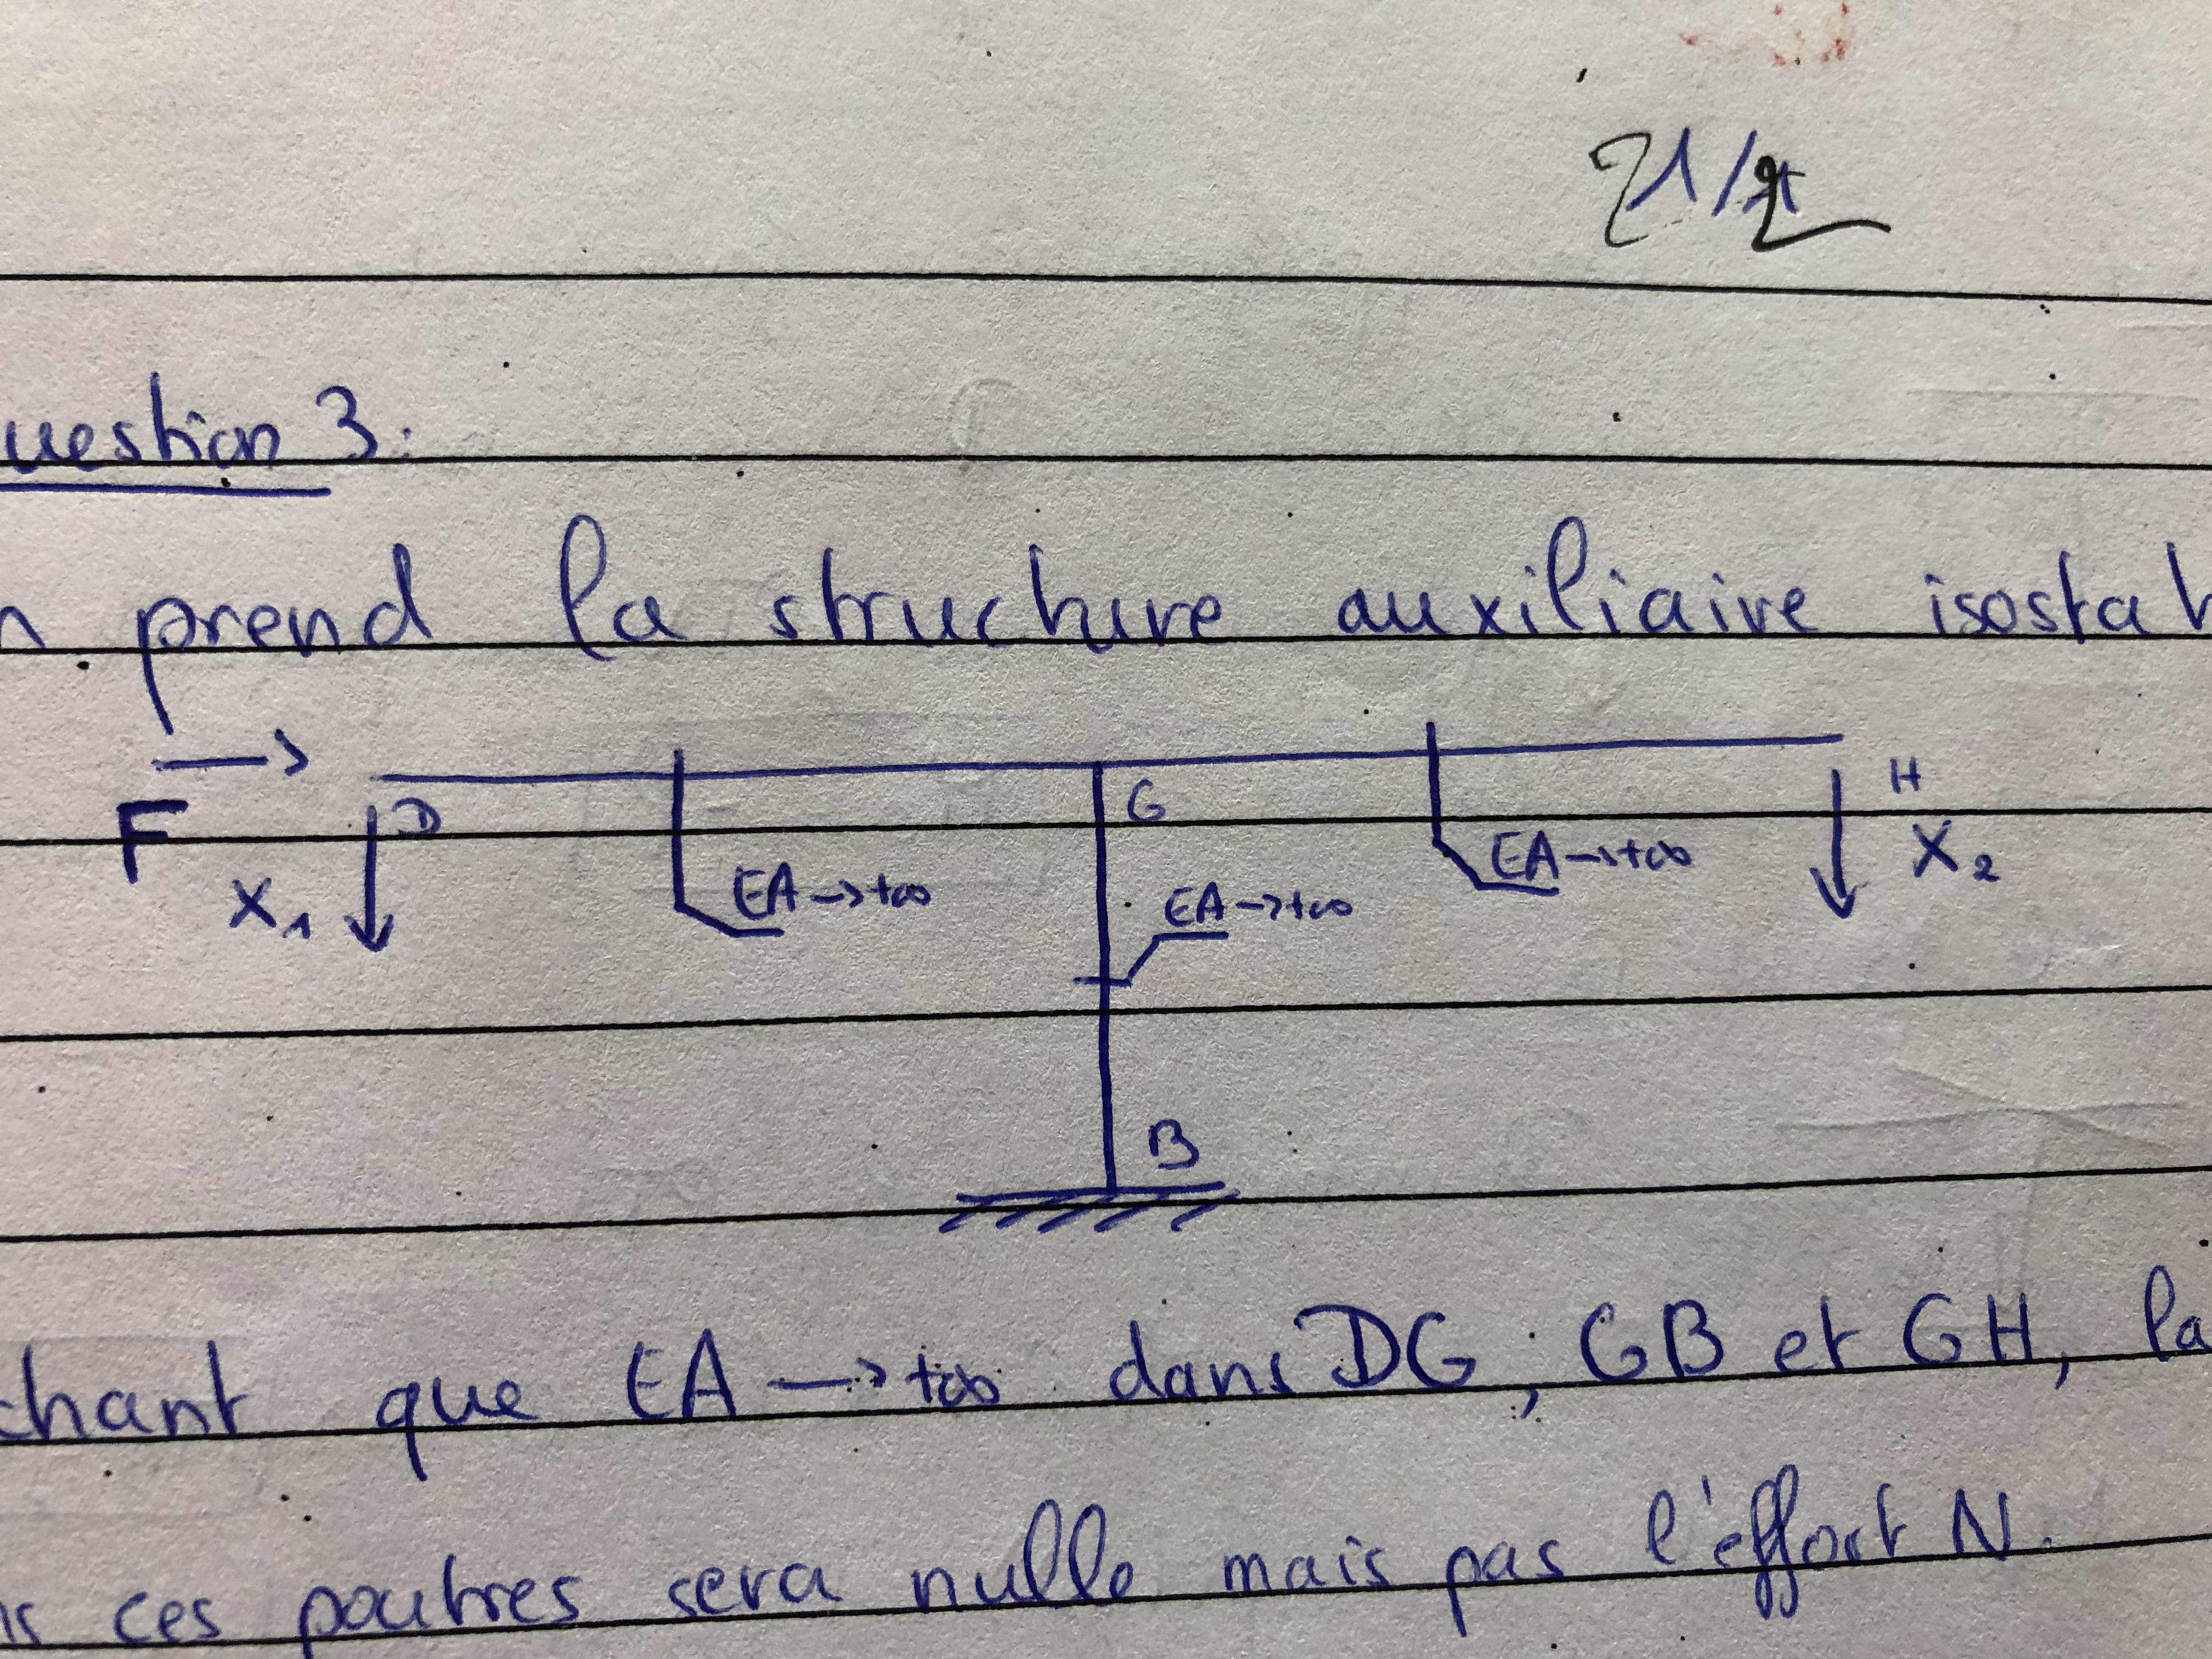 21/
uestion 3:
n prend la structure auxiliaire isostat
F
D
X₁
EA→+∞
G
EA→+∞
EA→+∞
H
X₂
B
chant que EA→+∞ dans DG, GB et GH, la
ces poutres sera nulle mais pas l'effort N.